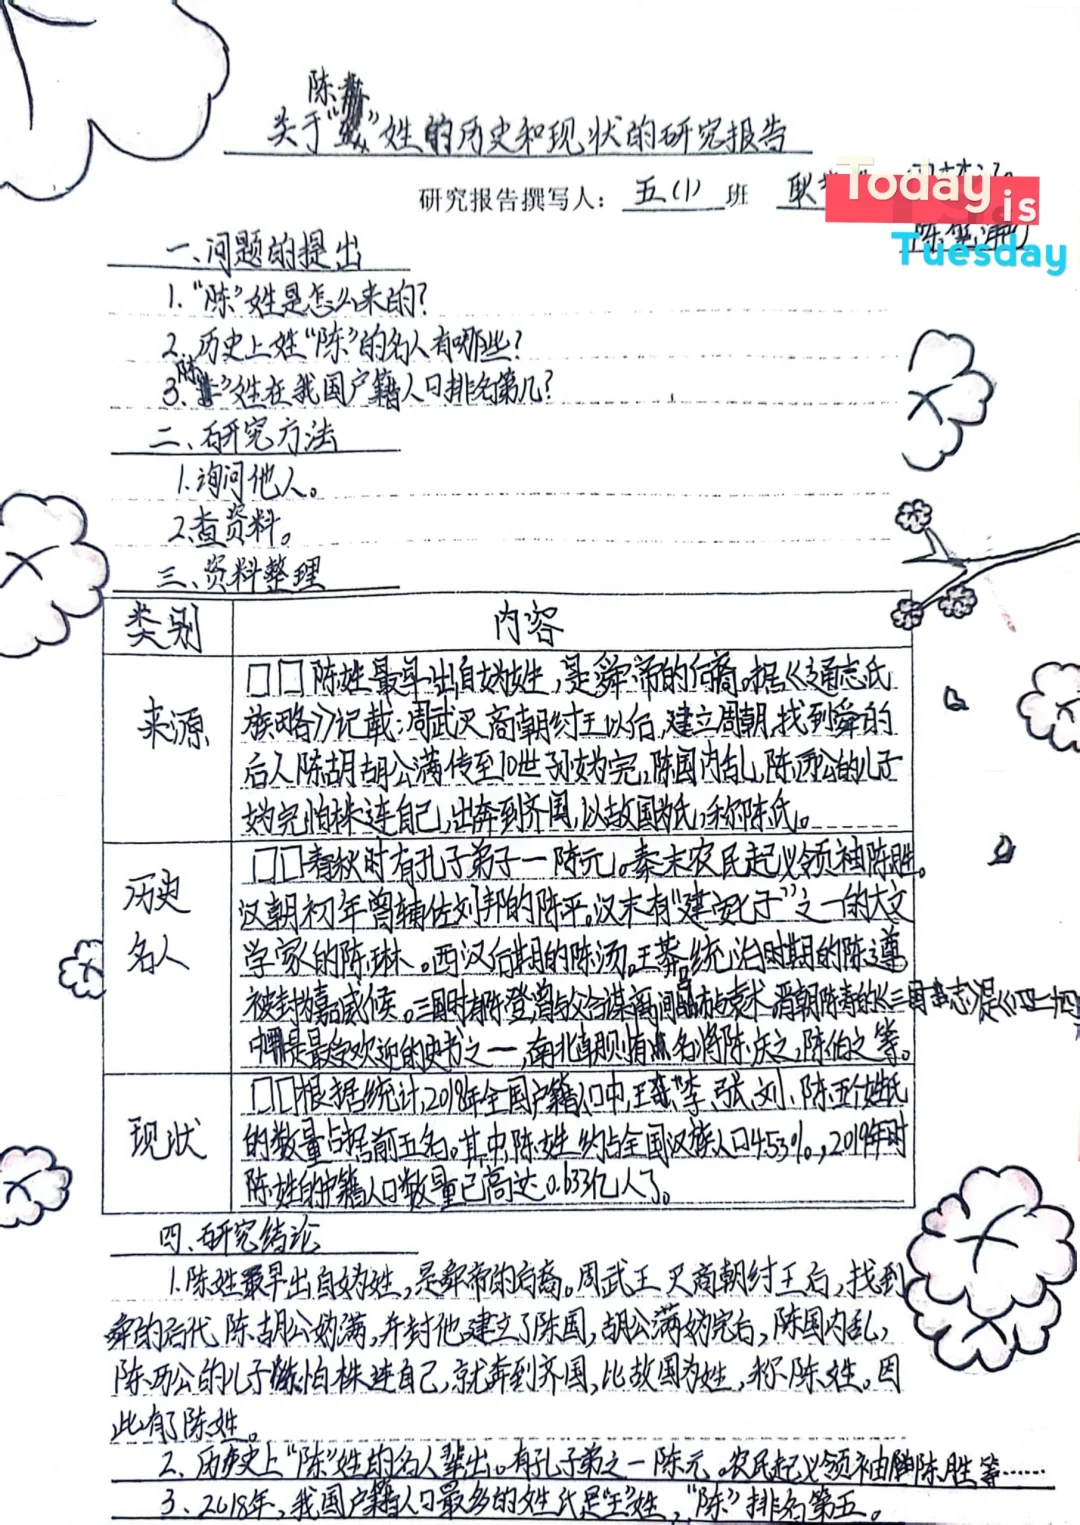 关于“陈”姓的历史和现状的研究报告
研究报告撰写人：五（1）班
Today
is
Tuesday
一、问题的提出
1.“陈”姓是怎么来的？
2.历史上姓“陈”的名人有哪些？
3.“陈”姓在我国户籍人口排名第几？
二、研究方法
1.询问他人。
2.查资料。
三、资料整理
类别 内容
来源
□□陈姓最早出自妫姓，是舜帝的后裔。据《通志氏
族略》记载：周武灭商朝纣王以后，建立周朝，找到舜的
后人陈胡胡公满传至10世孙妫完，陈国内乱，陈厉公的儿子
妫完怕株连自己，出奔到齐国，以故国为氏，称陈氏。
历史
名人
□□春秋时有孔子弟子一陈元。秦末农民起义领袖陈胜。
汉朝初年曾辅佐刘邦的陈平。汉末有“建安七子”之一的大文
学家的陈琳。西汉后期的陈汤。王莽统治时期的陈遵
被封为嘉威候。三国时有陈登曾与父合谋离间 袁术。晋朝陈寿的《三国志》是《四
中 是最受欢迎的史书之一，南北朝则有 名将陈庆之，陈伯之等。
现状
□□根据统计，2018年全国户籍人口中，王 李、张、刘、陈五个姓氏
的数量占据前五名。其中，陈姓约占全国汉族人口4.53%，2019年时
陈姓的户籍人口数量已高达0.633亿人了。
四、研究结论
1.陈姓最早出自妫姓，是舜帝的后裔。周武王灭商朝纣王后，找到
舜的后代陈胡公妫满，并封他建立了陈国，胡公满妫完后，陈国内乱，
陈厉公的儿子 怕株连自己，就奔到齐国，比故国为姓，称陈姓。因
此有了陈姓。
2、历史上“陈”姓的名人辈出。有孔子弟之一陈元。农民起义领袖陈胜等……
3、2018年，我国户籍人口最多的姓氏是“王”姓，“陈”排名第五。